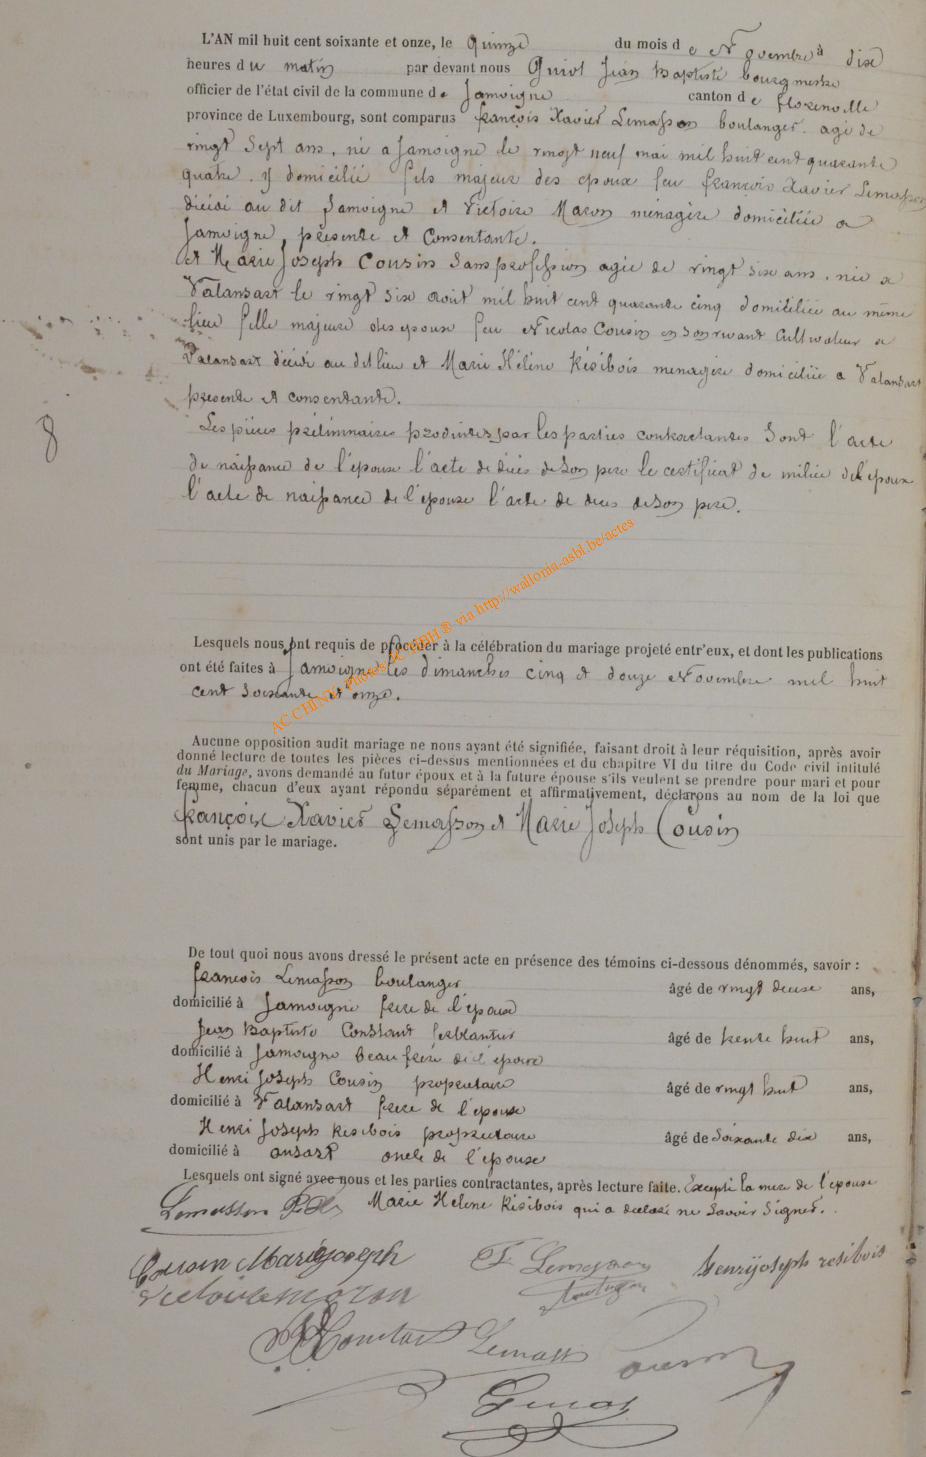 L'AN mil huit cent soixante et onze, le quinze du mois de Novembre à dix
heures du matin par devant nous Guiot Jean Baptiste bourgmestre
officier de l'état civil de la commune de Jamoigne canton de florenville
province de Luxembourg, sont comparus françois Xavier Lemasson boulanger. agé de
vingt Sept ans. né a Jamoigne le vingt neuf mai mil huit cent quarante
quatre. y domicilié fils majeur des epoux feu françois Xavier Lemasson
décédé au dit Jamoigne et Victoire Maron ménagère domiciliée a
Jamoigne, présente et Consentante.
et Marie Joseph Cousin Sans profession agée de vingt six ans. née a
Valansart le vingt six aout mil huit cent quarante cinq domiciliée au même
lieu fille majeure des epoux feu Nicolas Cousin en son vivant Cultivateur a
Valansart décédé au dit lieu et Marie Hélène Résibois menagère domiciliée a Valansart
présente et consentante.
8
Les pièces préliminaires produites par les parties contractantes Sont l'acte
de naissance de l'époux l'acte de décès de Son pere le certificat de milice de l'époux
l'acte de naissance de l'épouse l'acte de deces de Son pere.
ACCHINY photos via http://wallonia-asbl.be/actes
Lesquels nous ont requis de procéder à la célébration du mariage projeté entr'eux, et dont les publications
ont été faites à Jamoigne les dimanches cinq et douze Novembre mil huit
cent Soixante et onze.
Aucune opposition audit mariage ne nous ayant été signifiée, faisant droit à leur réquisition, après avoir
donné lecture de toutes les pièces ci-dessus mentionnées et du chapitre VI du titre du Code civil intitulé
du Mariage, avons demandé au futur époux et à la future épouse s'ils veulent se prendre pour mari et pour
femme, chacun d'eux ayant répondu séparément et affirmativement, déclarons au nom de la loi que
françois Xavier Lemasson et Marie Joseph Cousin
sont unis par le mariage.
De tout quoi nous avons dressé le présent acte en présence des témoins ci-dessous dénommés, savoir :
françois Lemasson boulanger âgé de vingt deuxe ans,
domicilié à Jamoigne frere de l'epoux
Jean Baptiste Constant ferblantier âgé de trente huit ans,
domicilié à Jamoigne beau frère de l'époux
Henri Joseph Cousin propriétaire âgé de vingt huit ans,
domicilié à Valansart frere de l'epouse
Henri Joseph Résibois propriétaire âgé de Soixante dix ans,
domicilié à ansart oncle de l'epouse
Lesquels ont signé avec nous et les parties contractantes, après lecture faite. Excepté la mere de l'épouse
Marie Helene Résibois qui a declaré ne Savoir Signer.
Lemasson
Cousin Marie joseph F. Lemasson henrij joseph resibois
Victoire maron
Constant Lemasson Cousin
Guiot